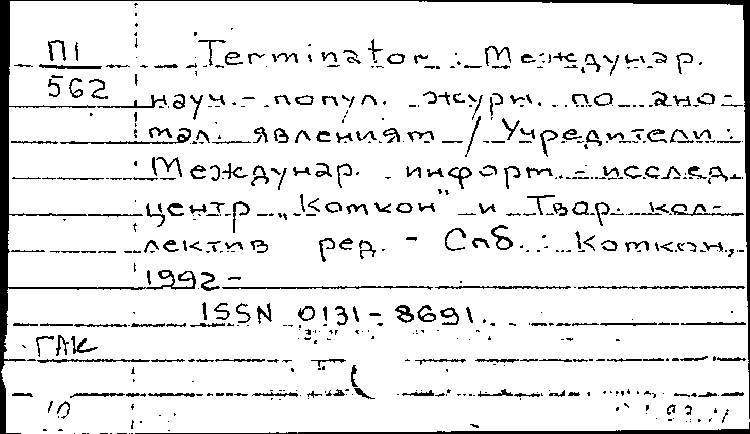 П1
562
Terminator : Междунар.
науч.- попул. журн. по ано-
мал. явлениям / Учредители:
Междунар. информ.- исслед.
центр „Комкон" и Твор. кол-
лектив ред. - Спб. : Комкон,
1992 -
ISSN 0131-8691.
ГАК
10